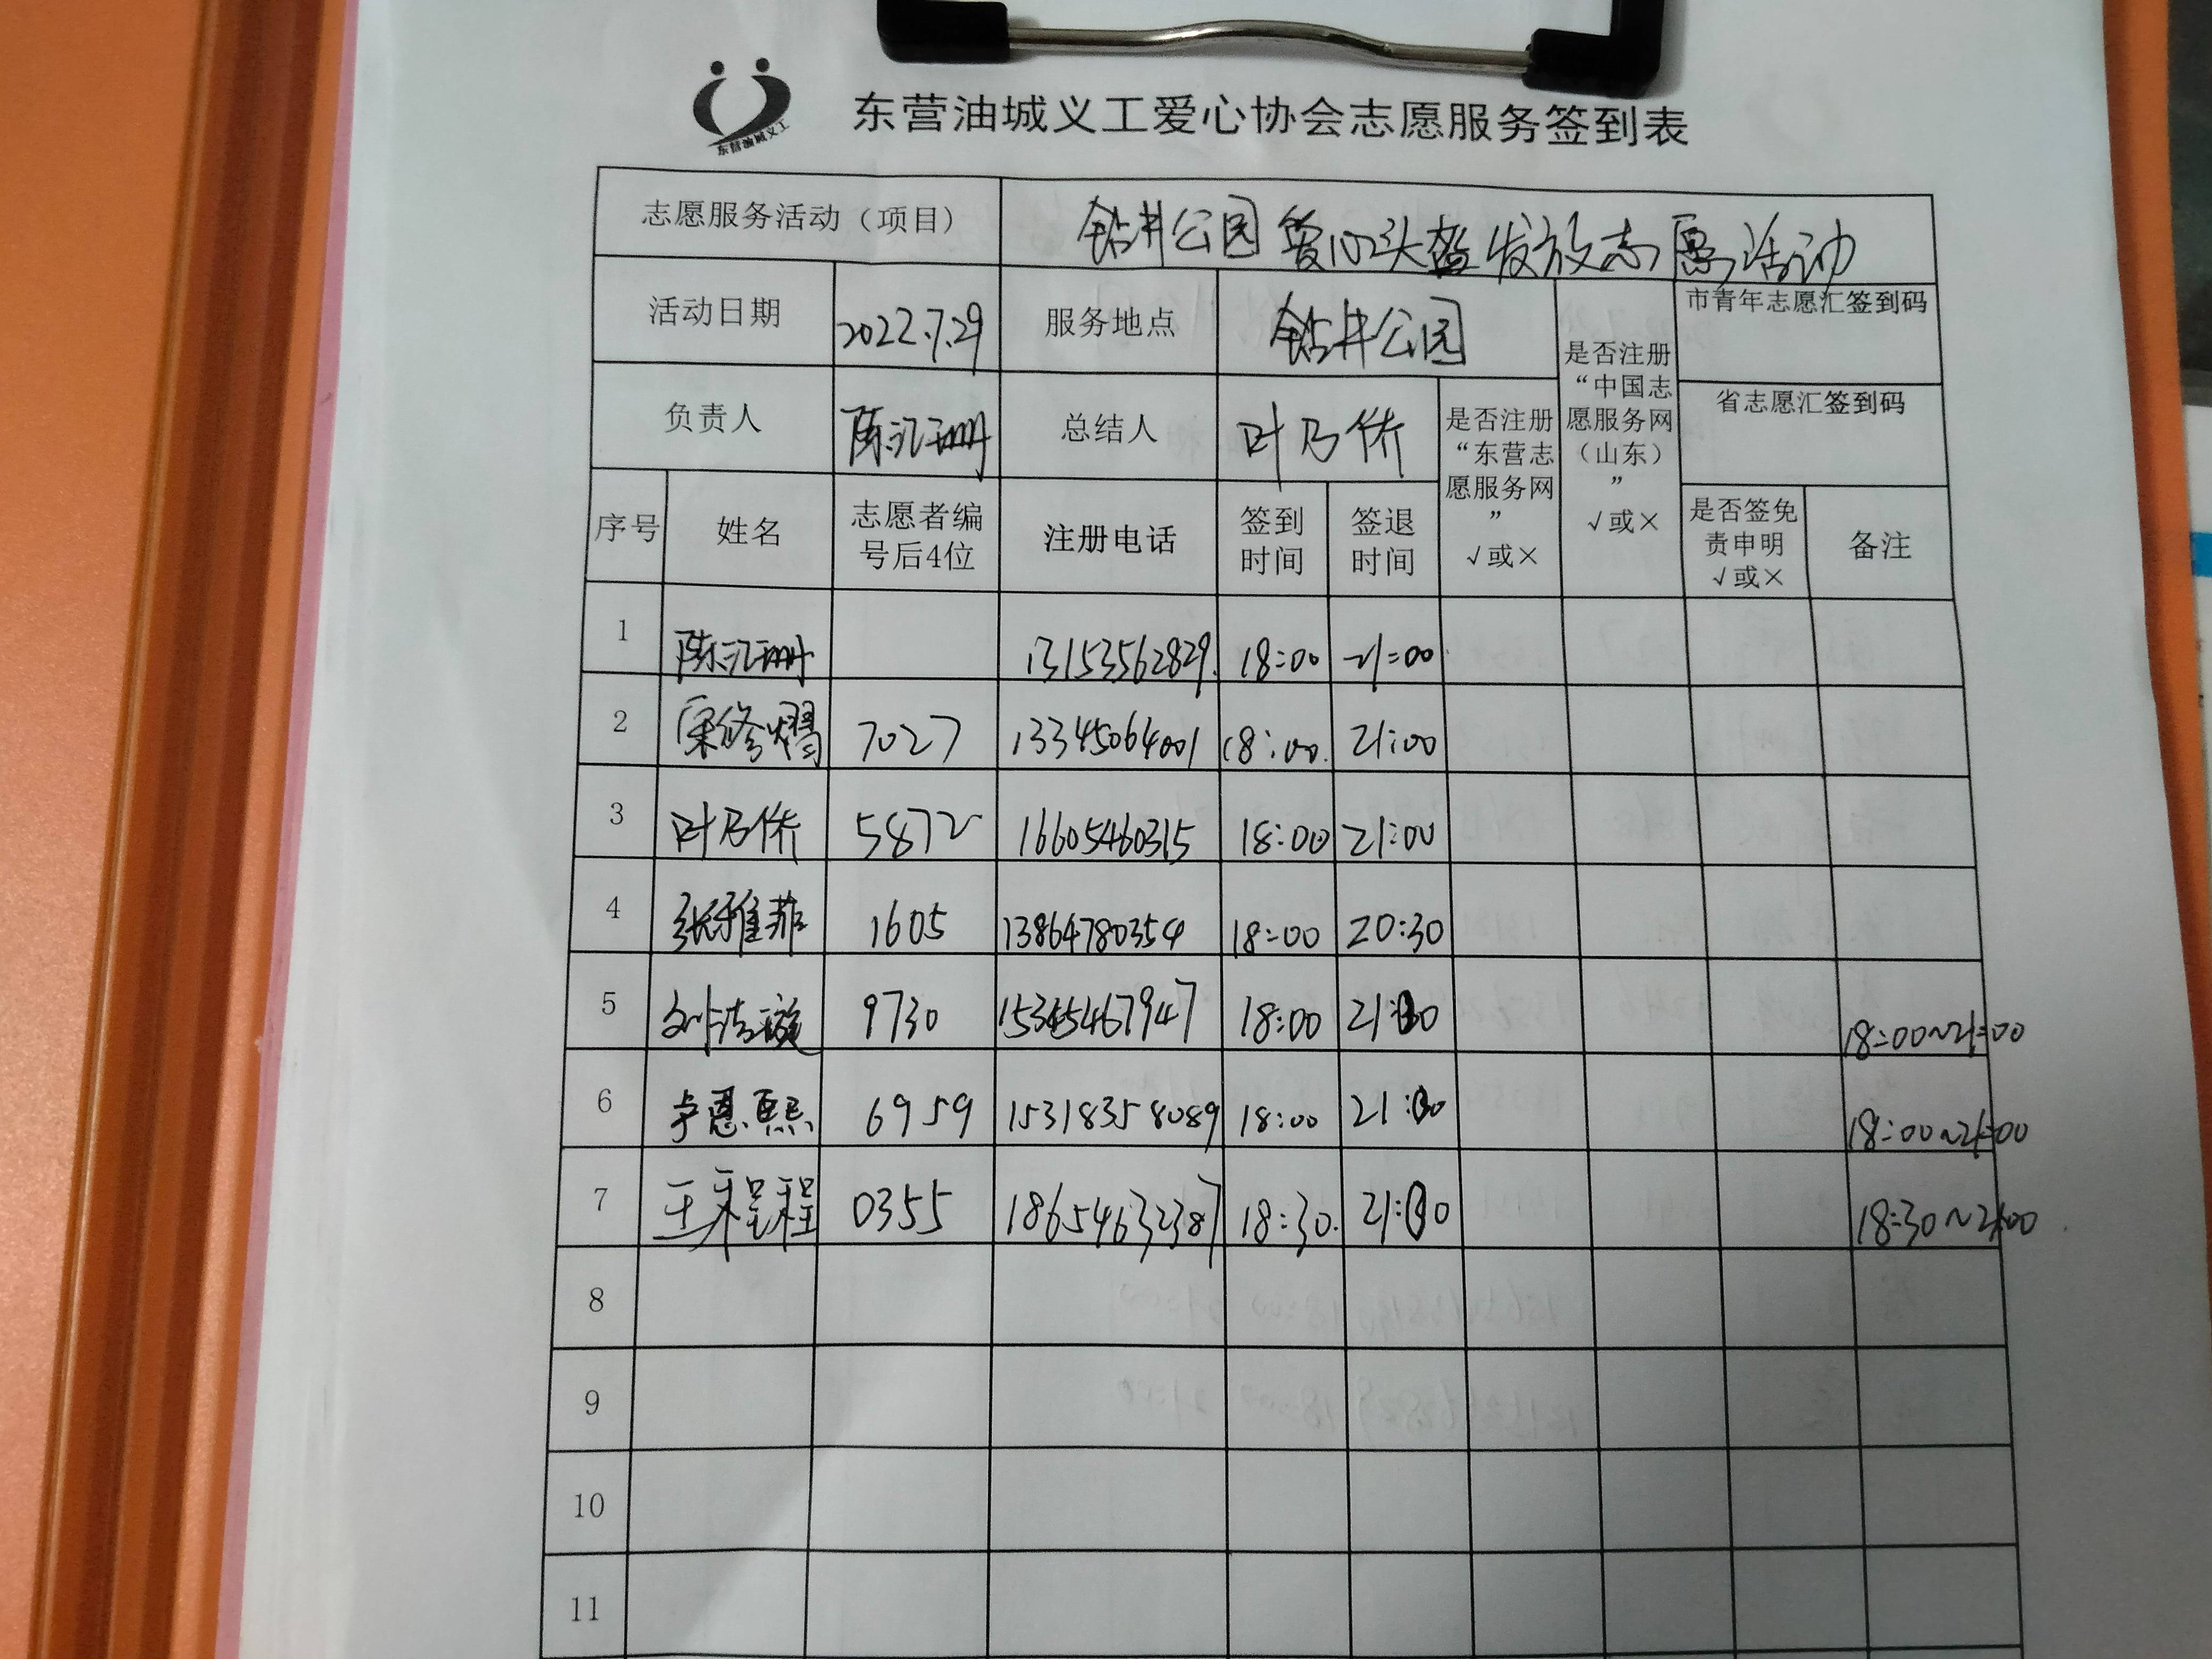 东营油城义工
东营油城义工爱心协会志愿服务签到表
志愿服务活动（项目） 钻井公园爱心头盔发放志愿活动
活动日期 2022.7.29 服务地点 钻井公园
市青年志愿汇签到码
负责人 陈汇珊 总结人 叶乃侨
省志愿汇签到码
是否注册
“东营志
愿服务网
”
√或×
是否注册
“中国志
愿服务网
（山东）
”
√或×
序号 姓名
志愿者编
号后4位
注册电话
签到
时间
签退
时间
是否签免
责申明
√或×
备注
1 陈汇珊 13153562829 18:00 21:00
2 7027 13345064001 18:00 21:00
3 叶乃侨 5872 16605460315 18:00 21:00
4 张雅菲 1605 13864780354 18:00 20:30
5 9730 15345467947 18:00 18:00~21:00
6 卢恩熙 6959 15318358089 18:00 18:00~21:00
7 王程程 0355 18654632387 18:30 18:30~21:00
8
9
10
11